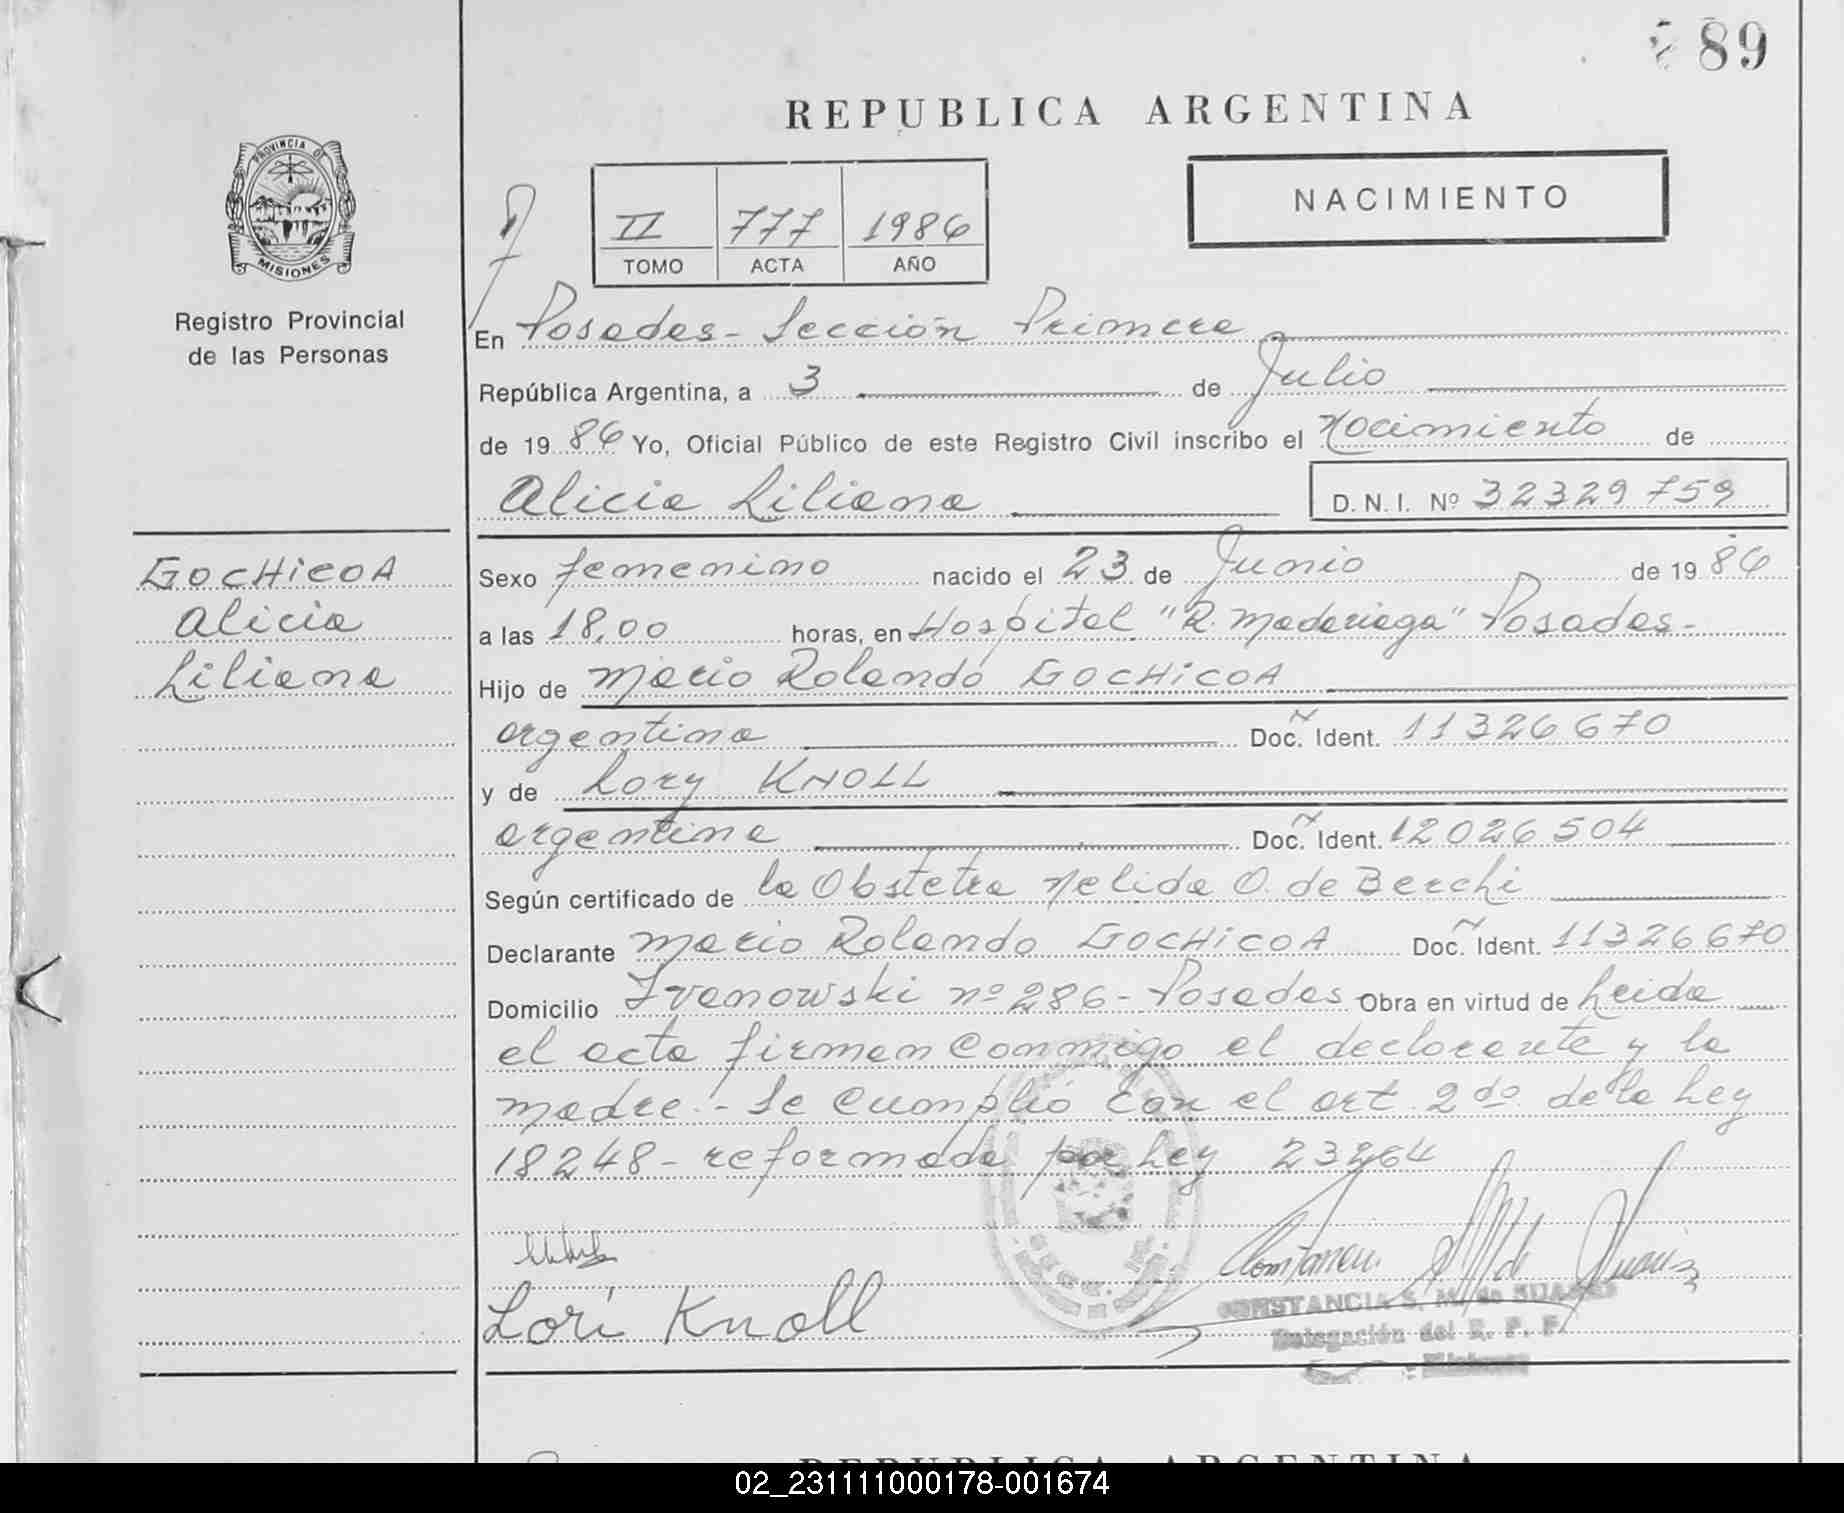 89
REPUBLICA ARGENTINA
NACIMIENTO
II 777 1986
TOMO ACTA AÑO
PROVINCIA DE
MISIONES
Registro Provincial
de las Personas
En Posadas - Sección Primera
República Argentina, a 3 de Julio
de 19 86 Yo, Oficial Público de este Registro Civil inscribo el Nacimiento de
Alicia Liliana D. N. I. Nº 32329759
GOCHICOA
Alicia
Liliana
Sexo femenino nacido el 23 de Junio de 19 86
a las 18,00 horas, en Hospital "R. Madariaga" Posadas -
Hijo de Mario Rolando GOCHICOA
argentina Doc. Ident. 11326670
y de Lory KNOLL
argentina Doc. Ident. 12026504
Según certificado de la Obstetra Nelida O. de Berchi
Declarante Mario Rolando GOCHICOA Doc. Ident. 11326670
Domicilio Ivanowski nº 286 - Posadas Obra en virtud de Leida
el acta firman conmigo el declarante y la
madre. - Se cumplió con el art. 2do de la Ley
18248 - reformada por Ley 23264
Lori Knoll
CONSTANCIA S. M. de SUAREZ
Delegación del R. P. P.
Misiones
REPUBLICA ARGENTINA
02_231111000178-001674